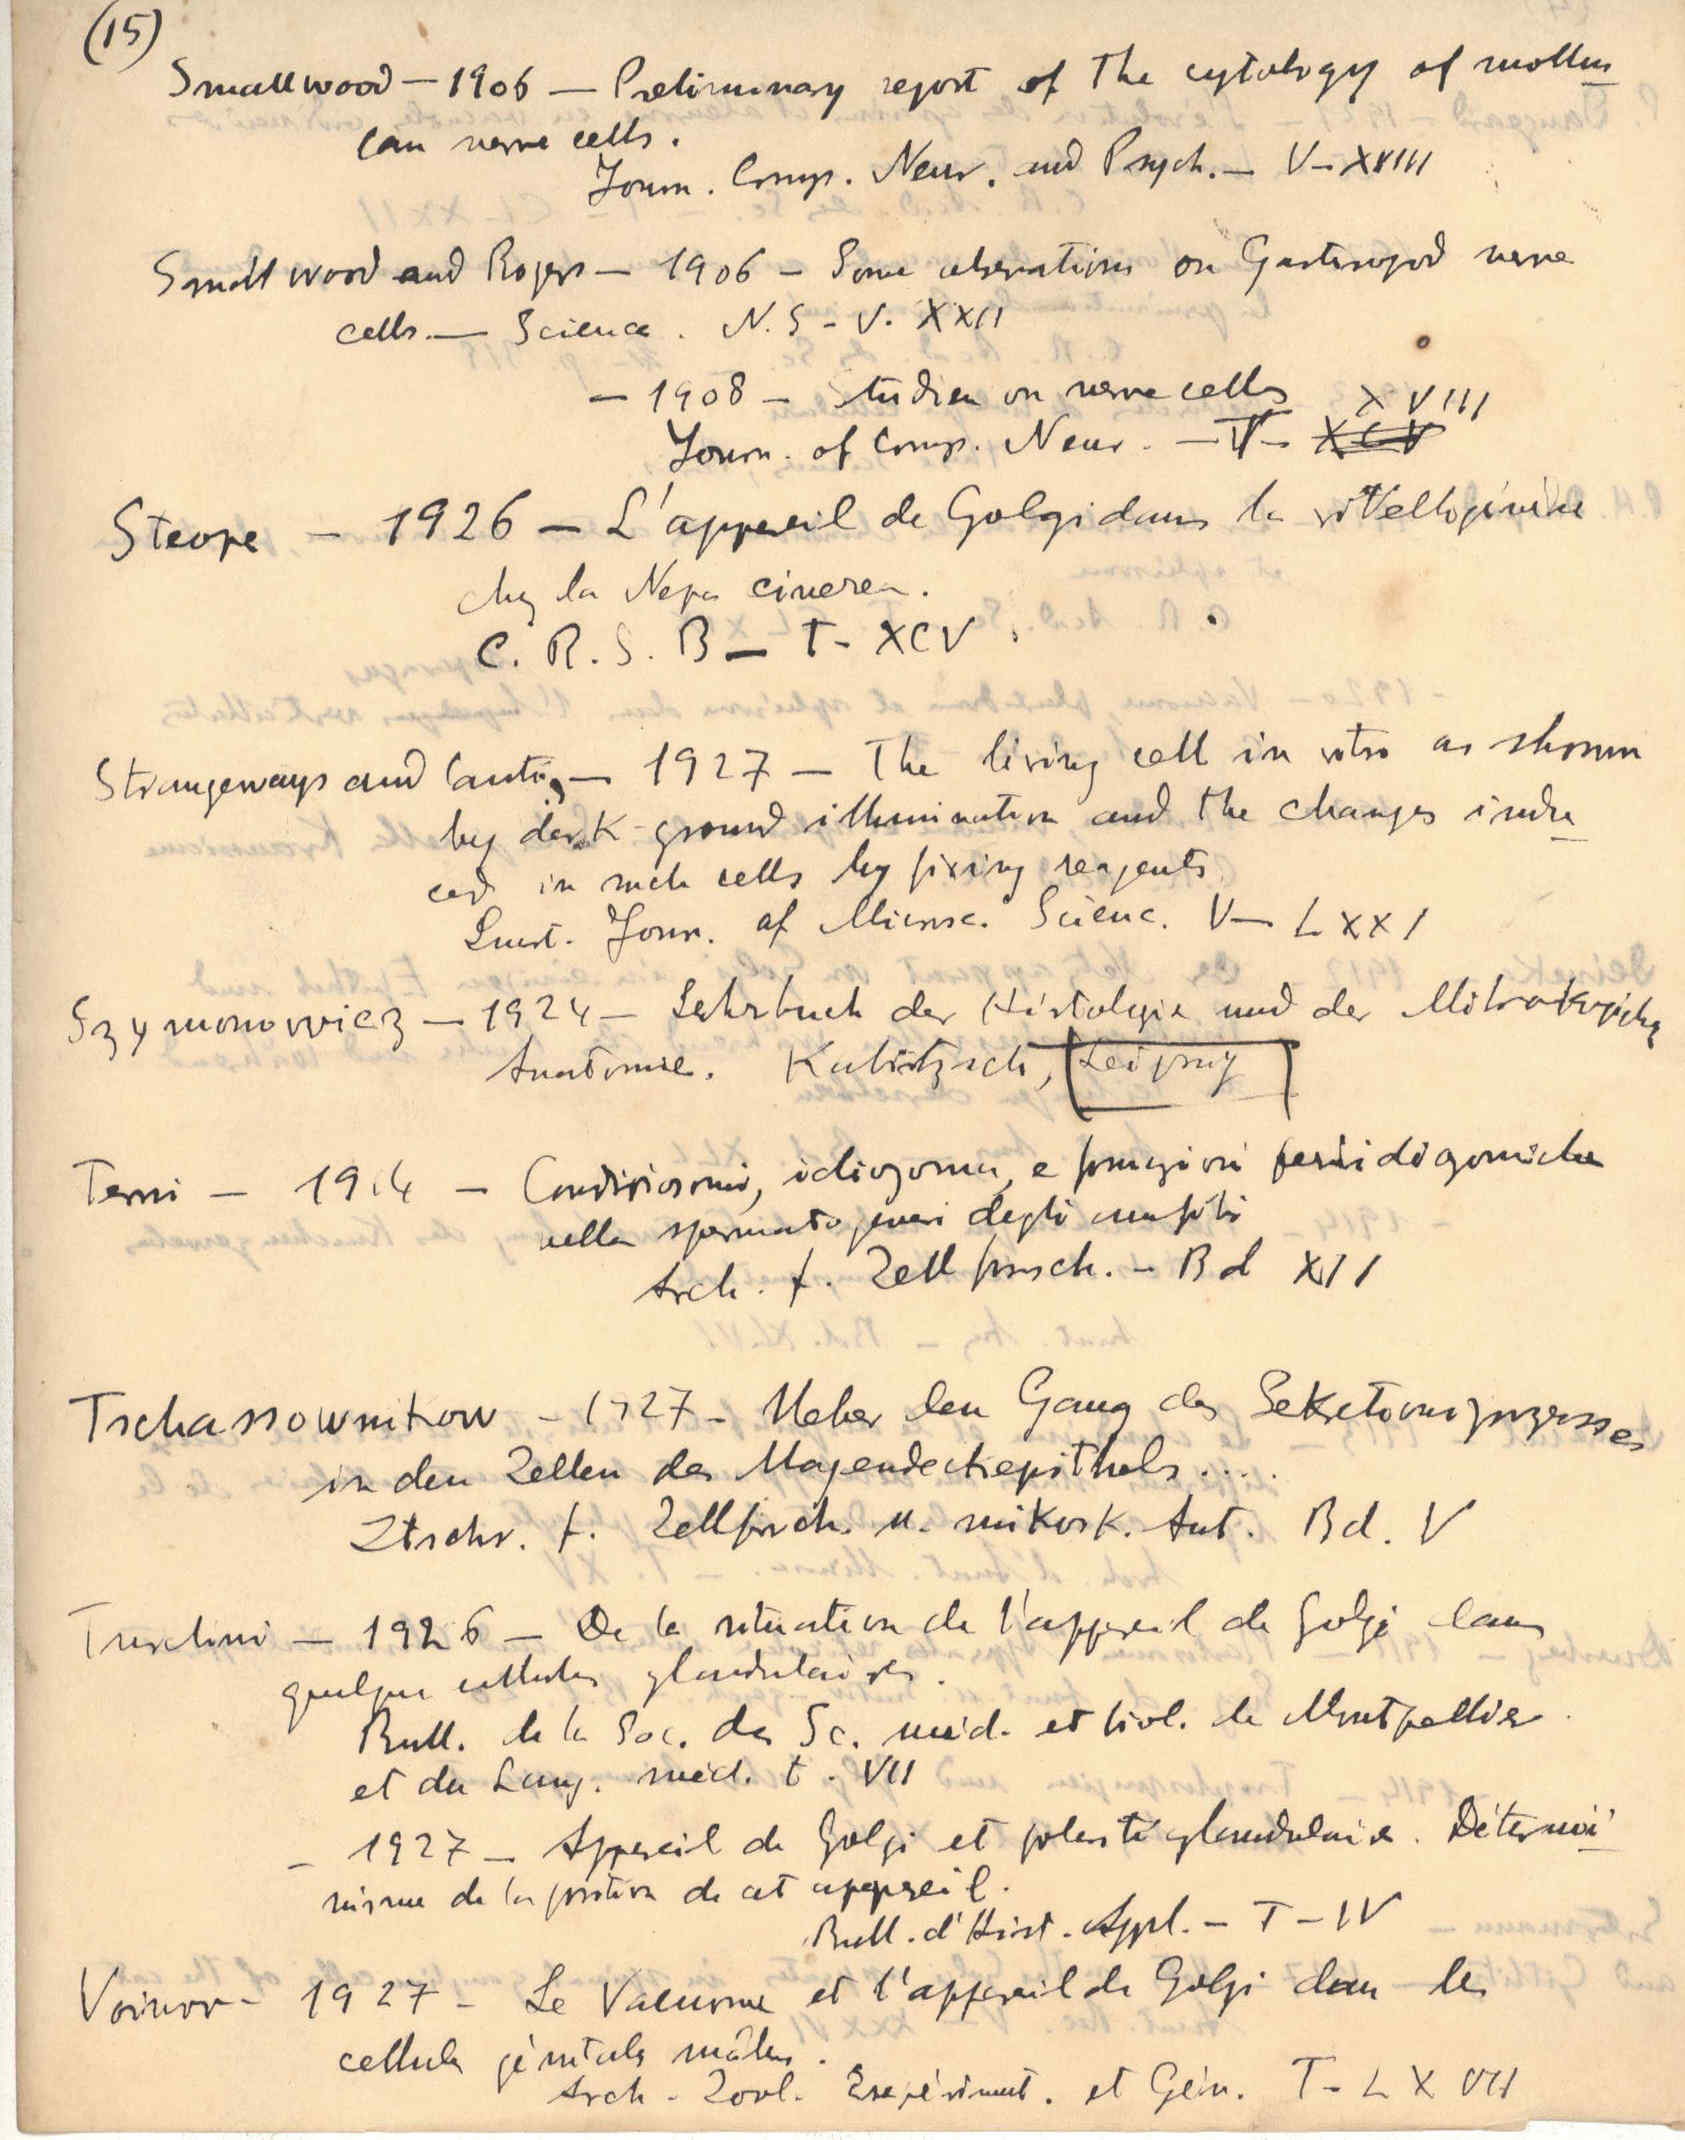 (15)
Smallwood — 1906 — Preliminary report of the cytology of mollus
can nerve cells.
Journ. Comp. Neur. and Psych. — V — XVIII
Smallwood and Rogers — 1906 — Some observations on Gasteropod nerve
cells. — Science. N. S - V. XXII
— 1908 — Studies on nerve cells XVIII
Journ. of Comp. Neur. — V —
Steope — 1926 — L'appareil de Golgi dans la vitellogénèse
chez la Nepa cinerea.
C. R. S. B — T - XCV
Strangeways and Canti — 1927 — The living cell in vitro as shown
by dark-ground illumination and the changes indu
ced in such cells by fixing reagents
Quart. Journ. of Microsc. Scienc. V — LXXI
Szymonowicz — 1924 — Lehrbuch der Histologie und der Mikroskopische
Anatomie. Kabitzsch, Leipzig
Terni — 1914 — Condriosomi, idiozoma, e formazioni periidiozomiche
nella spermatogenesi degli anfibi
Arch. f. Zellforsch. - Bd XII
Tschassownikow - 1927 - Ueber den Gang des Sekretionsprozesses
in den Zellen des Magendeckepithels ....
Ztschr. f. Zellforsch. u. mikrosk. Ant. Bd. V
Turchini — 1926 — De la situation de l'appareil de Golgi dans
quelques cellules glandulaires.
Bull. de la Soc. des Sc. méd. et biol. de Montpellier
et du Lang. med. t. VII
- 1927 — Appareil de Golgi et polarité glandulaire. Détermi
nisme de la position de cet appareil.
Bull. d'Hist. Appl. — T - IV
Voinov - 1927 - Le Vacuome et l'appareil de Golgi dans les
cellules génitales mâles.
Arch - Zool. Expériment. et Gén. T - LXVII